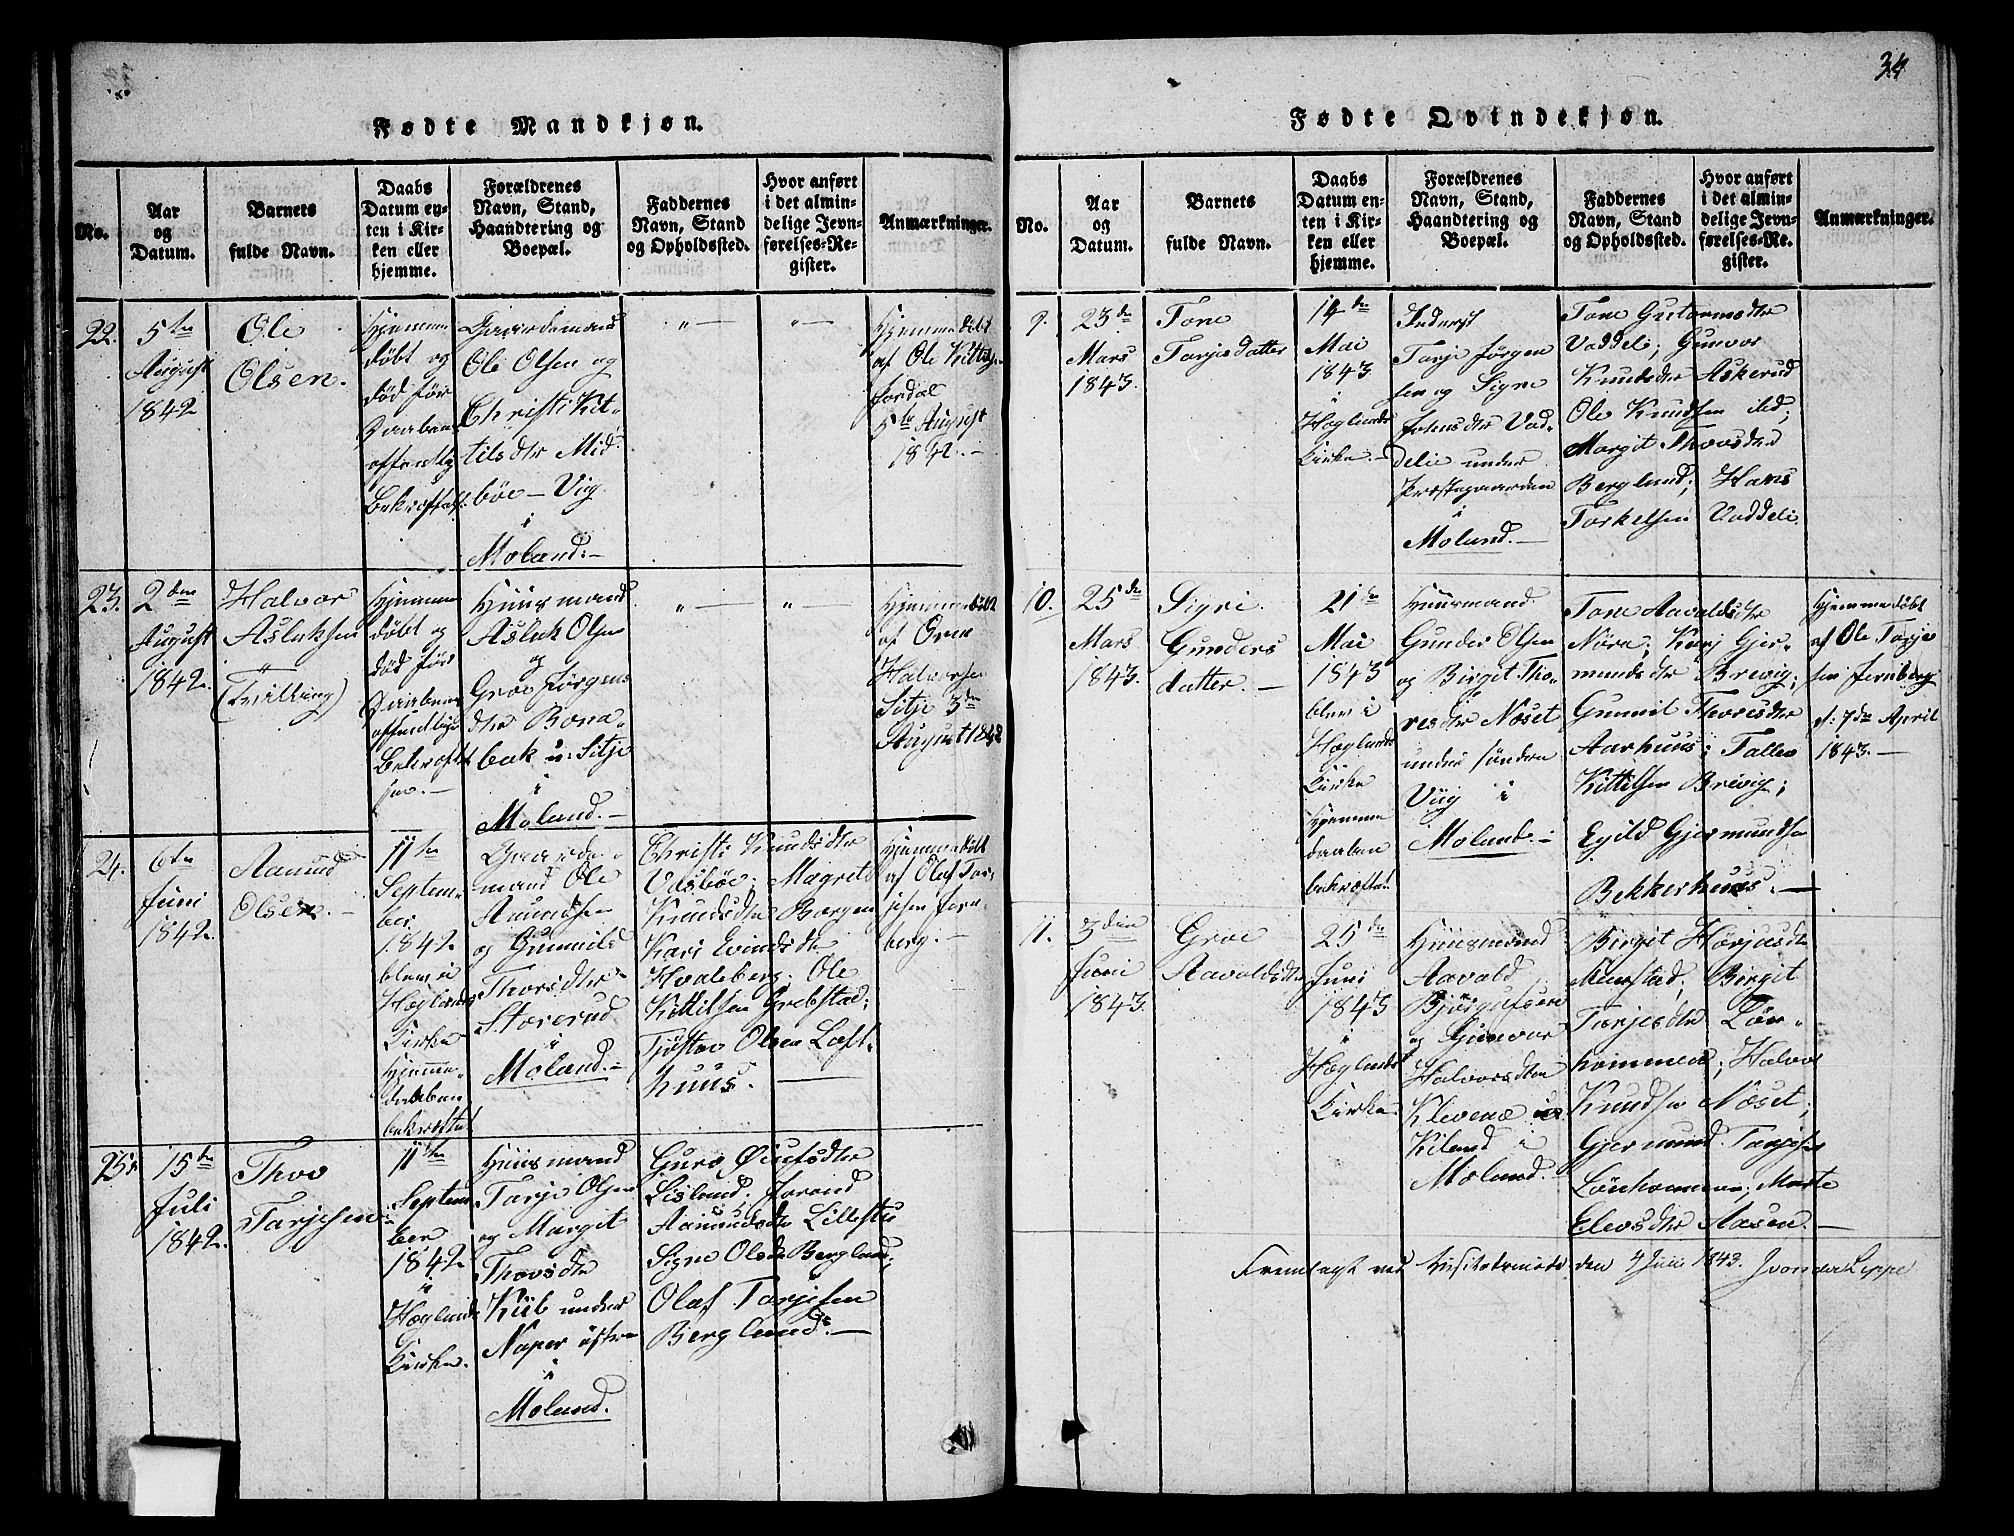 34
Fødte Mandkjøn.
No.
Aar
og
Datum.
Barnets
fulde Navn.
Daabs
Datum en-
ten i Kir-
ken eller
hjemme.
Forældrenes
Navn, Stand,
Haandtering og
Boepæl.
Faddernes
Navn, Stand
og Opholdssted.
Hvor anført
i det almin-
delige Jevn-
førelses-Re-
gister.
Anmærkninger.
22.
5te
August
1842
Ole
Olsen.
Hjemme
døbt og
død før
Daabens
offentlig
Bekræftelse
Gaardsmand
Ole Olsen og
Christi Kit-
tilsdtr Mid-
bøe - Vig
i
Moland.-
"
"
Hjemmedøbt
af Ole
5te August
1842.-
23.
2den
August
1842.
Halvor
Aslaksen
"
(Tvilling)
Hjemme
døbt og
død før
Daabens
offentlige
Bekræftel
sen.-
Huusmand
Aslak Olsen
og
Groe Jørgens
dtr Bona-
bak u: Sitje
i
Moland.-
"
"
Hjemmedøbt
af Oven
Halvorsen
Sitje 3die
August 1842
24.
6te
Juni
1842.
Aanund
Olsen.-
11te
Septem-
ber
1842
blev i
Høglands
Kirke
Hjemme-
daaben
bekræftet
Gaards-
mand Ole
Aanundsen
og Gunnild
Thorsdtr
Storerud
i
Moland.-
Christi Knudsdtr
Vasbøe; Magrete
Knudsdtr Borgen
Kari Evindsdtr
Hvaleberg; Ole
Kittilsen Grebstad;
Tjøstov Olsen Loft-
huus.
Hjemmedøbt
af Olaf Tar-
jesen Jern-
berg.-
25.
15te
Juli
1842.
Thov
Tarjesen
11te
Septem-
ber
1842
i
Høglands
Kirke.
Huusmand
Tarje Olsen
og Margit
Thovsdtr
Kiib under
Naper østre
i
Moland.
Guro Øiufsdtr
Lisland; Jorand
Aanundsdtr Lillestu
Signe Olsdtr Berglund;
Olaf Tarjesen
Berglund.-
Fødte Qvindekjøn.
No.
Aar
og
Datum.
Barnets
fulde Navn.
Daabs
Datum en-
ten i Kir-
ken eller
hjemme.
Forældrenes
Navn, Stand,
Haandtering og
Boepæl.
Faddernes
Navn, Stand
og Opholdssted.
Hvor anført
i det almin-
delige Jevn-
førelses-Re-
gister.
Anmærkninger.
9.
23de
Mars
1843.
Tone
Tarjesdatter
14de
Mai
1843
i
Høglands
Kirke.-
Inderst
Tarje Jørgen
sen og Signe
Johnsdtr Vad-
delie under
Præstegaarden
i
Moland.-
Tone Gutormsdtr
Vaddeli; Gunvor
Knudsdtr Askerud
Ole Knudsen ibd;
Margit Thovsdtr
Berglund; Hans
Torkelsen Vaddeli
10.
25de
Mars
1843.
Sigri
Gunders
datter.-
21te
Mai
1843
blev i
Høglands
Kirke
Hjemme
daaben
bekræftet
Huusmand
Gunder Olsen
og Birgit Tho-
resdtr Nøset
under søndere
Viig i
Moland.-
Tone Aavaldsdtr
Nöra; Kari Gjer-
mundsdtr Brevig;
Gunnil Thoresdtr
Aarhuus; Tallev
Kittilsen Brevig;
Egild Gjermundsen
Bekkerhuus.-
Hjemmedøbt
af Ole Tarje
sen Jernberg
d: 7de April
1843.-
11.
3die
Juni
1843.
Groe
Aavaldsdtr
25de
Juni
1843
i
Høglands
Kirke.
Huusmand
Aavald
Bjørgufsen
og Gunvor
Halvorsdtr
Klevene u:
Kiland i
Moland.
Birgit
Birgit
Tarjesdtr Løn-
hommen; Halvor
Knudsen Nøset;
Gjermund Tarjesen
Lönhommen; Marte
Elevsdtr Aasen.-
Fremlagt ved Visitatsmøde den
1843. J von der Lippe